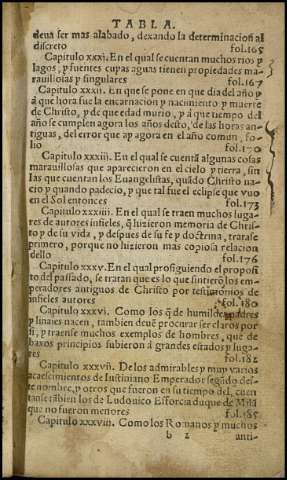 TABLA.
deua ser mas alabado, dexando la determinacion al
discreto fol.165
Capitulo xxxi. En el qual se cuentan muchos rios y
lagos, y fuentes cuyas aguas tienen propiedades ma-
rauillosas y singulares fol.167
Capitulo xxxii. En que se pone en que dia del año y
á que hora fue la encarnacion y nacimiento y muerte
de Christo, y de que edad murio, y á que tiempo del
año se cumplen agora los años desto, de las horas an-
tiguas, del error que ay agora en el año comun, fo-
lio fol.170
Capitulo xxxiii. En el qual se cuentã algunas cosas
marauillosas que aparecieron en el cielo y tierra, sin
las que cuentan los Euangelistas, quãdo Christo na-
cio y quando padecio, y que tal fue el eclipse que vuo
en el Sol entonces fol.173
Capitulo xxxiiii. En el qual se traen muchos luga-
res de autores infieles, q̃ hizieron memoria de Chris-
to y de su vida, y despues de su fe y dostrina, tratase
primero, porque no hizieron mas copiosa relacion
dello fol.176
Capitulo xxxv. En el qual prosiguiendo el proposi
to del passado, se tratan que es lo que sintierõ los em-
peradores antiguos de Christo por testimonios de
infieles autores fol.180
Capitulo xxxvi. Como los q̃ de humildes padres
y linajes nacen, tambien deuẽ procurar ser claros por
si, y traense muchos exemplos de hombres, que de
baxos principios subieron á grandes estados y luga-
res fol.182
Capitulo xxxvii. De los admirables y muy varios
acaescimientos de Iustiniano Emperador segũdo des-
te nombre, y otros que fueron en su tiempo del, cuen
tanse tãbien los de Ludouico Esforcia duque de Milã
que no fueron menores fol.185
Capitulo xxxviii. Como los Romanos y muchos
b 2 anti-